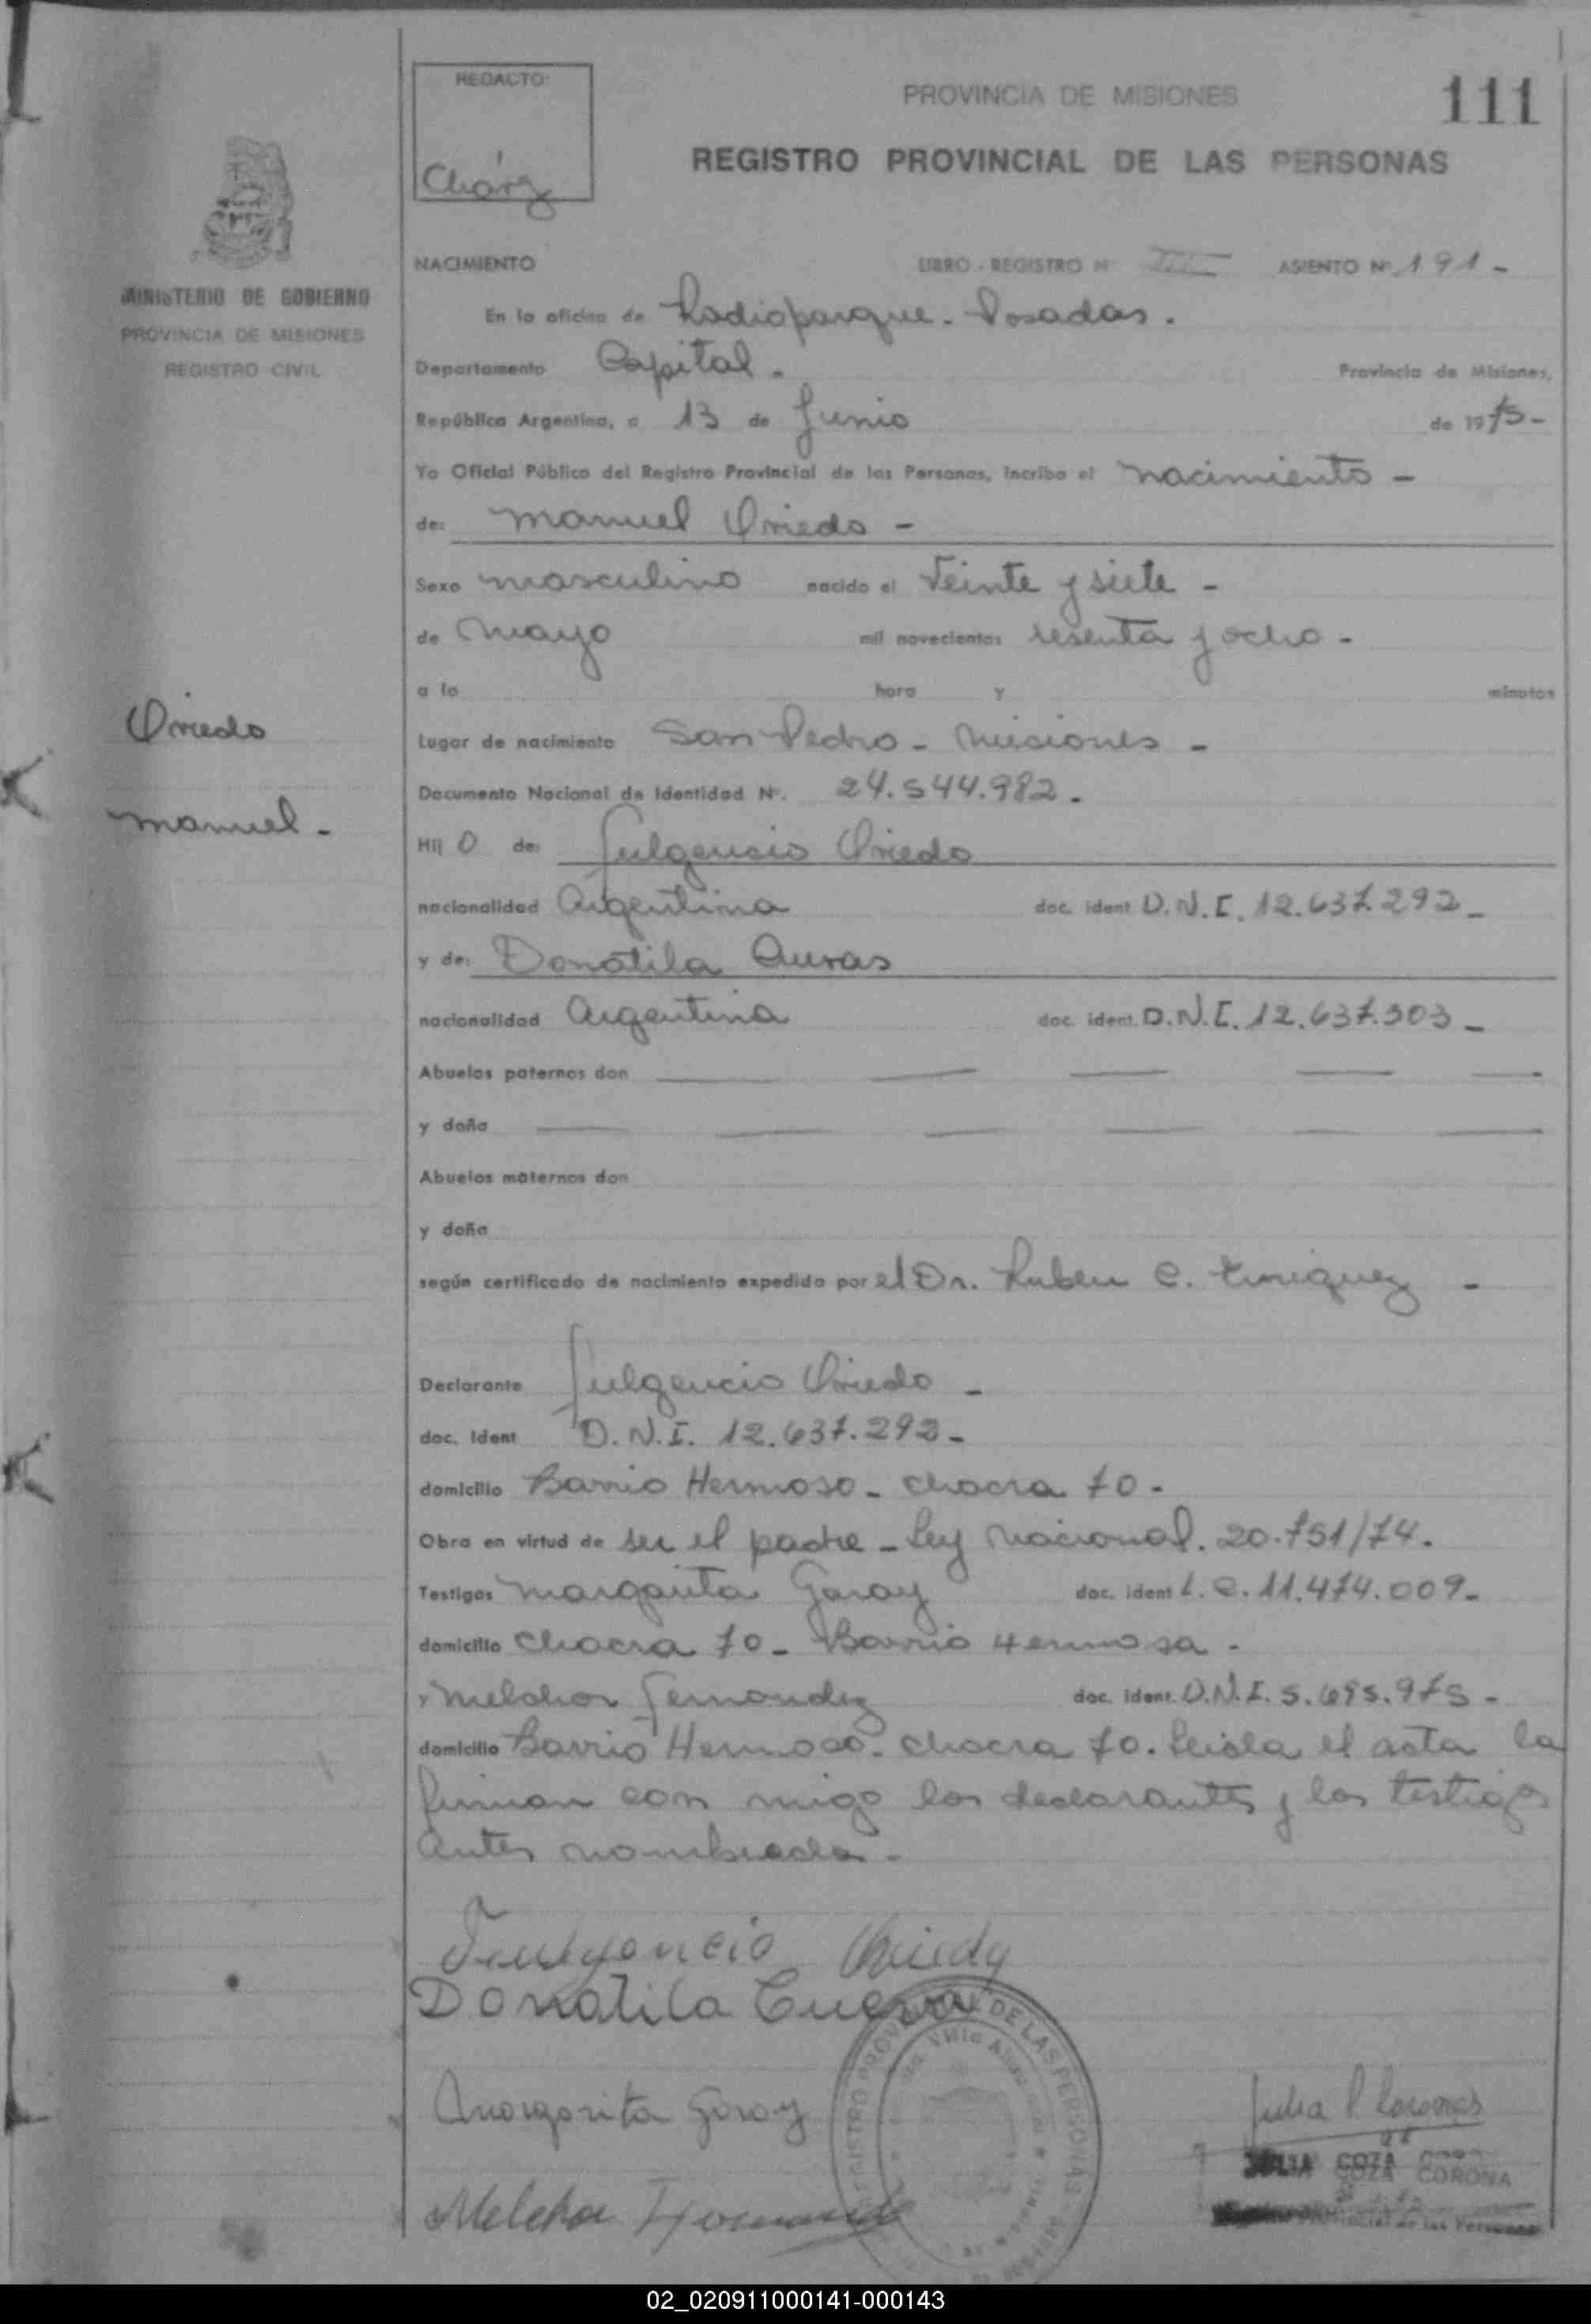 REDACTO:
PROVINCIA DE MISIONES
111
REGISTRO PROVINCIAL DE LAS PERSONAS
NACIMIENTO LIBRO - REGISTRO Nº III ASIENTO Nº 191 -
MINISTERIO DE GOBIERNO
PROVINCIA DE MISIONES
REGISTRO CIVIL
En la oficina de Radioparque - Posadas.
Departamento Capital - Provincia de Misiones,
República Argentina, a 13 de Junio de 1975 -
Yo Oficial Público del Registro Provincial de las Personas, incribo el nacimiento -
de: Manuel Oviedo -
Sexo masculino nacido el Veinte y siete -
de Mayo mil novecientos sesenta y ocho -
a la hora y minutos
Oviedo
Manuel -
Lugar de nacimiento San Pedro - Misiones -
Documento Nacional de Identidad Nº. 24.544.982 -
Hij o de: Fulgencio Oviedo
nacionalidad Argentina doc. ident D.N.I. 12.637.292 -
y de: Donatila Cuevas
nacionalidad Argentina doc. ident. D.N.I. 12.637.303 -
Abuelos paternos don
y doña
Abuelos maternos don
y doña
según certificado de nacimiento expedido por el Dr. Ruben C. Enriquez -
Declarante Fulgencio Oviedo -
doc. ident D.N.I. 12.637.292 -
domicilio Barrio Hermoso - chacra 70 -
Obra en virtud de ser el padre - Ley Nacional. 20.751/74.
Testigos Margarita Garay doc. ident L.C. 11.474.009 -
domicilio Chacra 70 - Barrio Hermosa -
y Melchor Fernandez doc. ident. D.N.I. 5.695.975 -
domicilio Barrio Hermoso - chacra 70. Leida el acta la
firman con migo los declarantes y los testigos
antes nombrados -
Fulgencio Oviedo
Donatila Cuevas
REGISTRO PROVINCIAL DE LAS PERSONAS
Margarita Garay
JULIA CORONA
Melchor
02_020911000141-000143